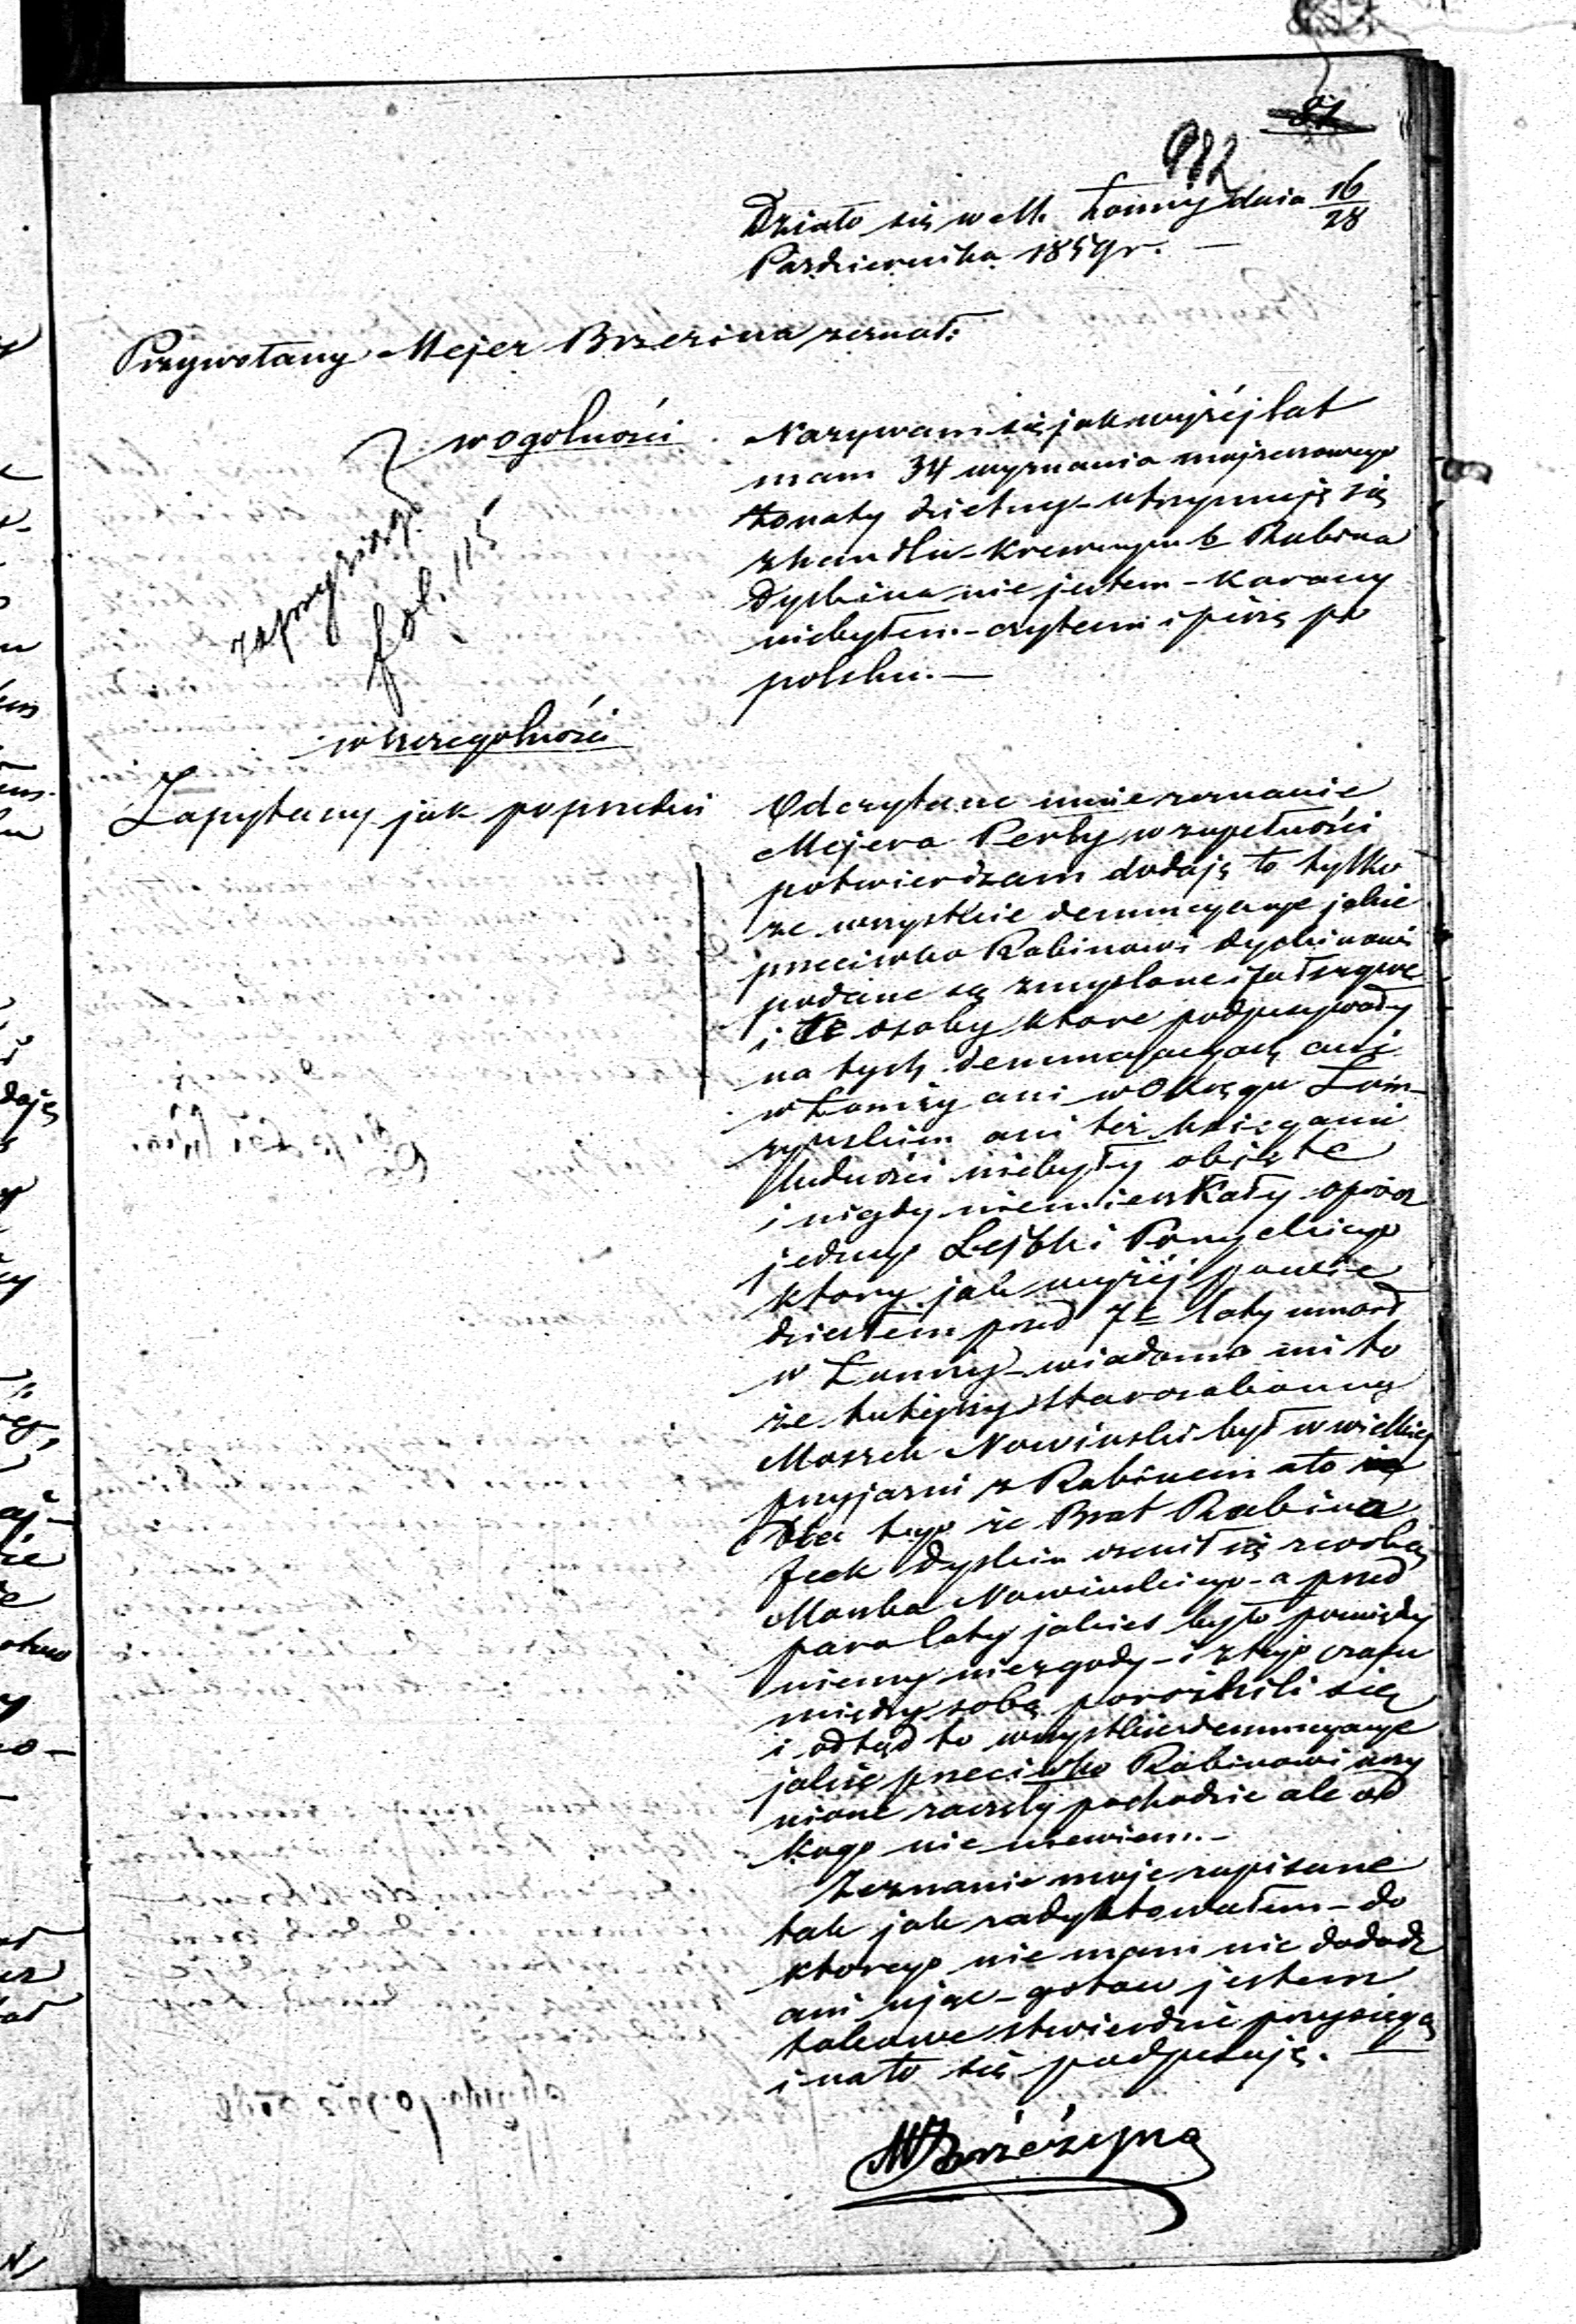 82
Działo się w M. Łomży dnia 16/28
Pazdziernika 1859 r. —
Przywołany Mejer Brzezina zeznał:
w ogolności
zaprzysiężo
fol. 115
Nazywam się jak wyżéj lat
mam 34 wyznania mojżeszowego
żonaty dzietny - utrzymuję się
z handlu - krewnym b Rabina
Dyskina nie jestem - karany
niebyłem. - czytam i piszę po
polsku. —
w szczegolności
Zapytany jak poprzedni
Odczytane mnie zeznanie
Mejera Perły w zupełności
potwierdzam dodaję to tylko
ze wszystkie denuncyacye jakie
przeciwko Rabinowi Dyskinowi
podane są zmyslone i fałszywe
i te osoby ktore podpisywały
na tych denuncyacyach ani
w Łomży ani w Okręgu Łom-
zynskim ani też księgami
ludności niebyły objęte
i nigdy niemieszkały oprócz
jednego Lejbki
ktory jak wyżéj powie
działem przed 7 laty umarł
w Łomży - wiadomo mi to
że tutejszy starozakonny
Moszek Nowinski był w wielkiej
przyjazni z Rabinem a to
dla tego że Brat Rabina
Icek Dyskin ożenił się z córką
Moszka Nowinskiego - a przed
para laty jakies było pomiędzy
niemy niezgody - i z tego czasu
między sobą porożnili się
i odtąd to wszystkie denuncyacye
jakie przeciwko Rabinowi uczy
nione zaczęły pochodzic ale od
kogo nie niewiem. -
Zeznanie moje zapisane
tak jak zadyktowałem - do
ktorego nie mam nic dodadz
ani ująć - gotow jestem
takowe stwierdzić przysięgą
i na to się podpisuję. —
M Brzézyna